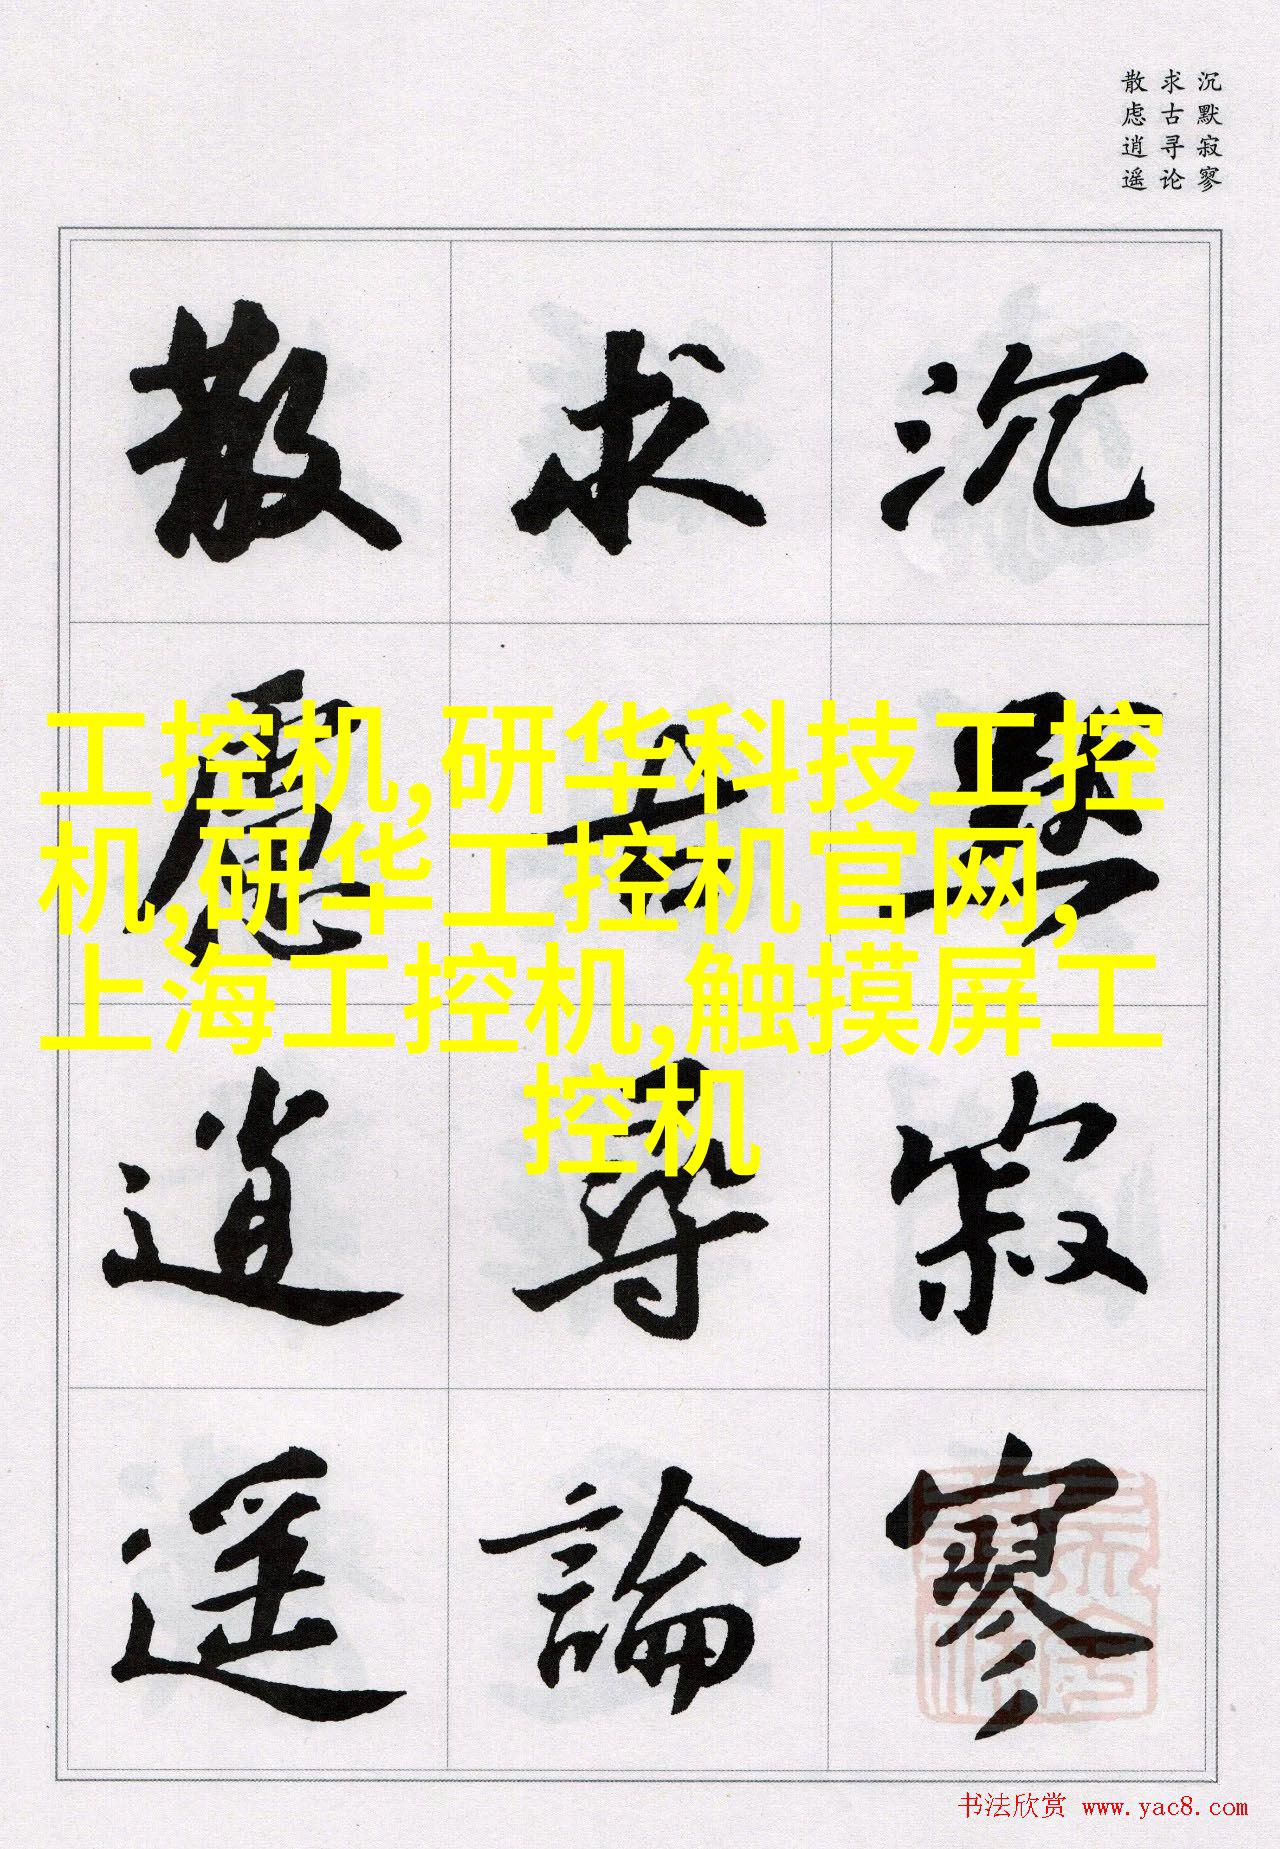 沉默寂寥
求古寻论
散虑逍遥
沉默寂寥
求古尋論
散慮逍遥
工控机,研华科技工控
机,研华工控机官网,
上海工控机,触摸屏工
控机
书法欣赏 www.yac8.com